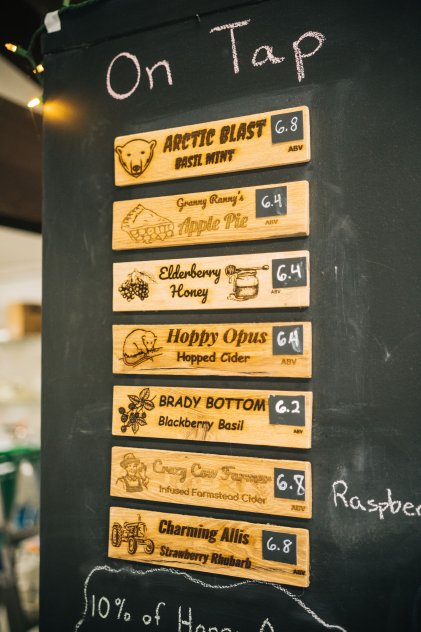 On Tap
ARCTIC BLAST 6.8
BASIL MINT ABV
Granny Ranny's 6.4
Apple Pie ABV
Elderberry 6.4
Honey ABV
Hoppy Opus 6.4
Hopped Cider ABV
BRADY BOTTOM 6.2
Blackberry Basil ABV
Crazy Cow Farmer 6.8
Infused Farmstead Cider ABV
Raspbe
Charming Allis 6.8
Strawberry Rhubarb ABV
10% of